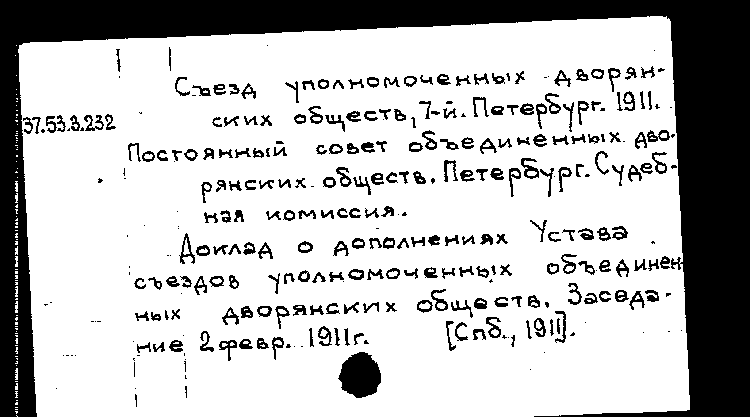 Съезд уполномоченных дворян-
ских обществ, 7-й. Петербург. 1911.
37.53.3.232
Постоянный совет объединенных дво-
рянских обществ. Петербург. Судеб-
ная комиссия.
Доклад о дополнениях Устава
съездов уполномоченных объединен-
ных дворянских обществ. Заседа-
ние 2 февр. 1911 г. [Спб., 1911].